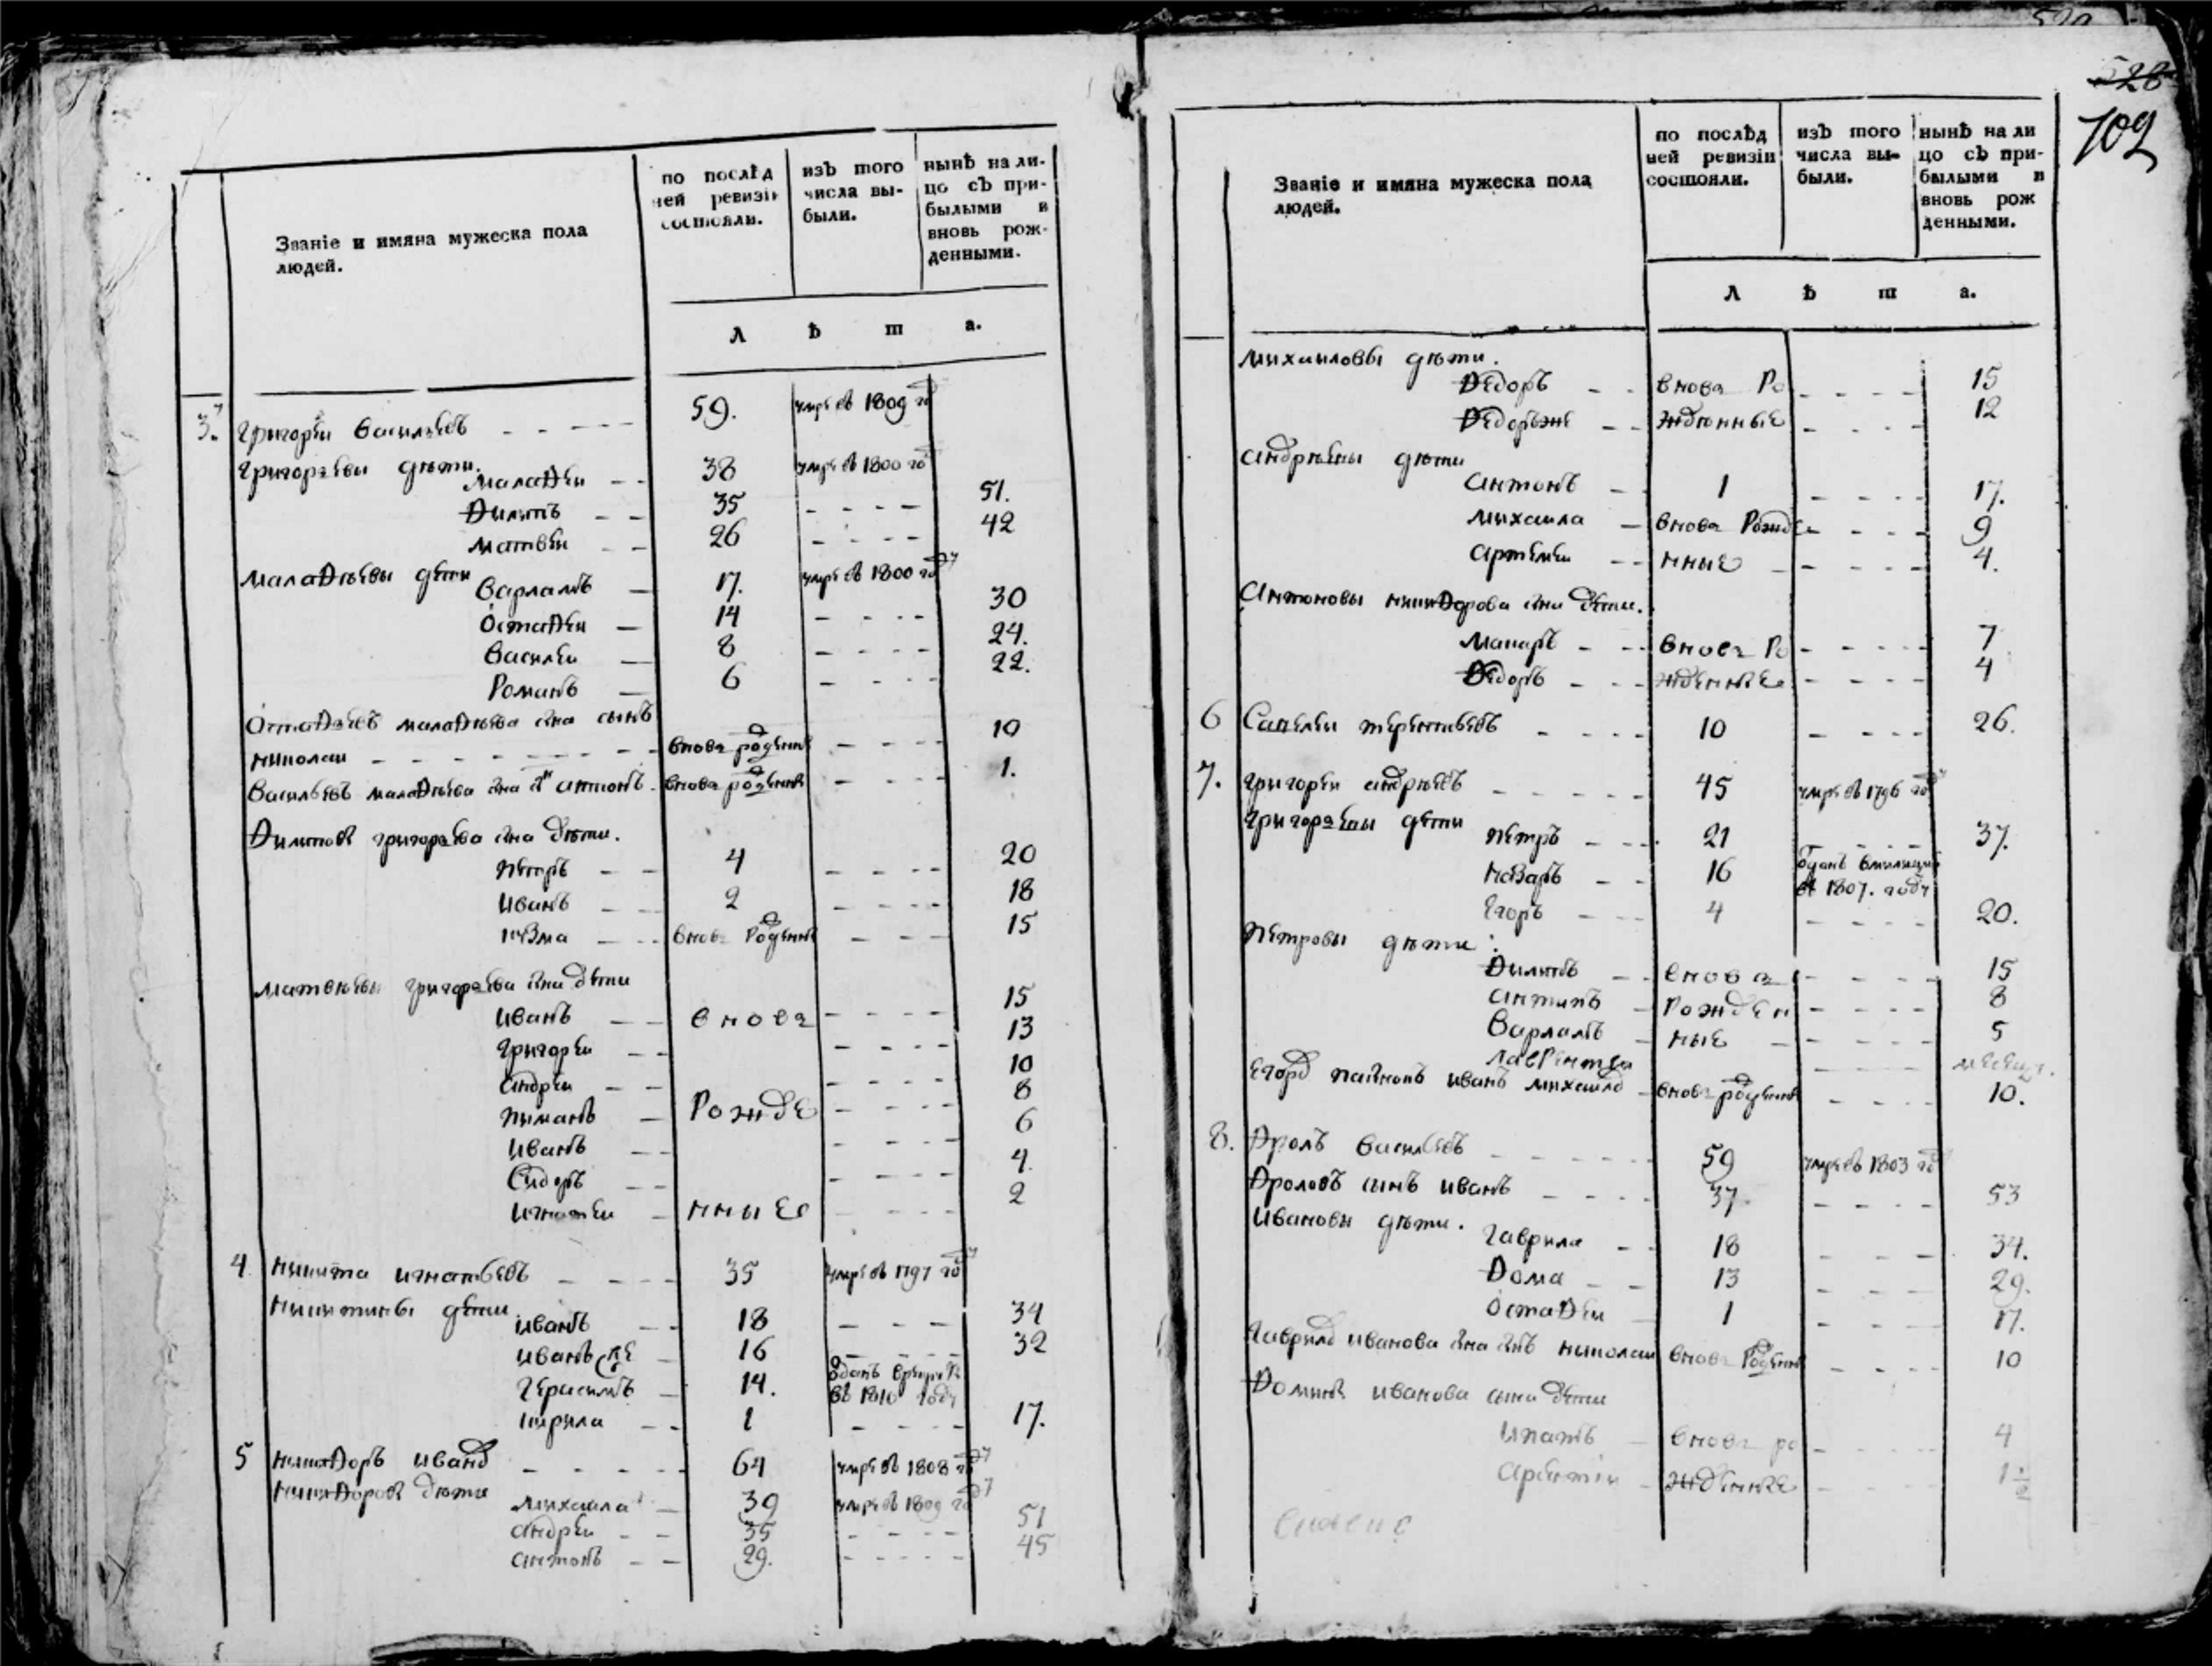 Званіе и имяна мужеска пола
людей.
по послѣд
ней ревизіи
состояли.
изъ того
числа вы-
были.
нынѣ на ли-
цо съ при-
былыми и
вновь рож-
денными.
Л ѣ т а.
3. Григореи Васильевъ 59. умре въ 1809 году
Григорьевы дѣти.
Малафеи 38 умре въ 1800 году
Филипъ 35 51.
Матвеи 26 42
Малафѣевы дети Варламъ 17. умре въ 1800 году
Остафеи 14 30
Василеи 8 24.
Романъ 6 22.
Остафьевъ малафѣева сна сынъ
николаи внова рожденъ 10
Васильевъ малафѣева сна снъ антонъ внова рожденъ 1.
Филиповы григорьева сна дѣти.
Петръ 4 20
Иванъ 2 18
кузма внова рожденъ 15
Матвѣевы григорьева сна дѣти
Иванъ внова 15
Григореи 13
Андреи 10
Пиманъ рожде 8
Иванъ 6
Сидоръ 4.
Игнатеи нные 2
4 Никита игнатьевъ 35 умре въ 1797 году
Никитины дети.
иванъ 18 34
иванъ же 16 32
Герасимъ 14. оданъ врекруты
въ 1810 году
кирила 1 17.
5 никифоръ ивановъ 64 умре въ 1808 году
Никифоровы дѣти
михаила 39 умре въ 1809 году
андреи 35 51
антонъ 29. 45
528
102
Званіе и имяна мужеска пола
людей.
по послѣд
ней ревизіи
состояли.
изъ того
числа вы-
были.
нынѣ на ли
цо съ при-
былыми и
вновь рож
денными.
Л ѣ т а.
михаиловы дѣти.
Федоръ внова ро 15
Федоръже жденные 12
андрѣевы дѣти
антонъ 1 17.
михаила внова рожде 9
артемеи нные 4.
Антоновы никифорова сна дѣти.
макаръ внова ро 7
Федоръ жденные 4
6 Савелеи терентьевъ 10 26.
7. григореи андрѣевъ 45 умре въ 1796 году
Григорьевы дети
Петръ 21 37.
назаръ 16 оданъ вмилицию
въ 1807. году
Егоръ 4 20.
Петровы дѣти:
Филипъ внова 15
антипъ рожден 8
Варламъ ные 5
лаврентеи
Егоровъ иванъ михаиловъ внова рожденъ 10.
8. Фролъ васильевъ 59 умре въ 1803 году
Фроловъ сынъ иванъ 37. 53
Ивановы дѣти.
Гаврила 18 34.
Фома 13 29.
остафеи 1 17.
Гаврилов иванова сна снъ николаи внова рожденъ 10
Фомины иванова сына дѣти
Ипатъ внова ро 4
жденные 1½